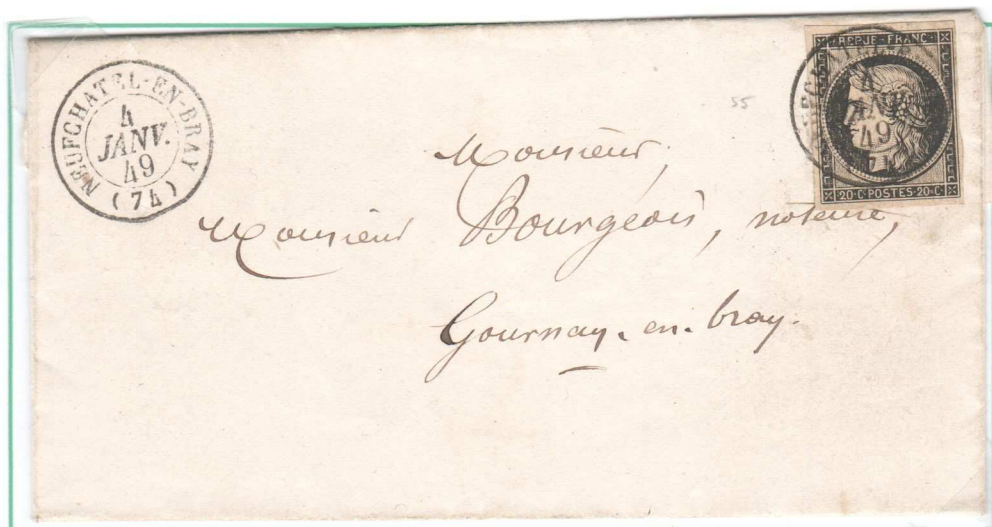 NEUFCHATEL-EN-BRAY
4
JANV.
49
(74)
REPUB·FRANC·
4
JANV.
49
(74)
20·C·POSTES·20·C·
55
Monsieur,
Monsieur Bourgeois, notaire,
Gournay-en-bray.